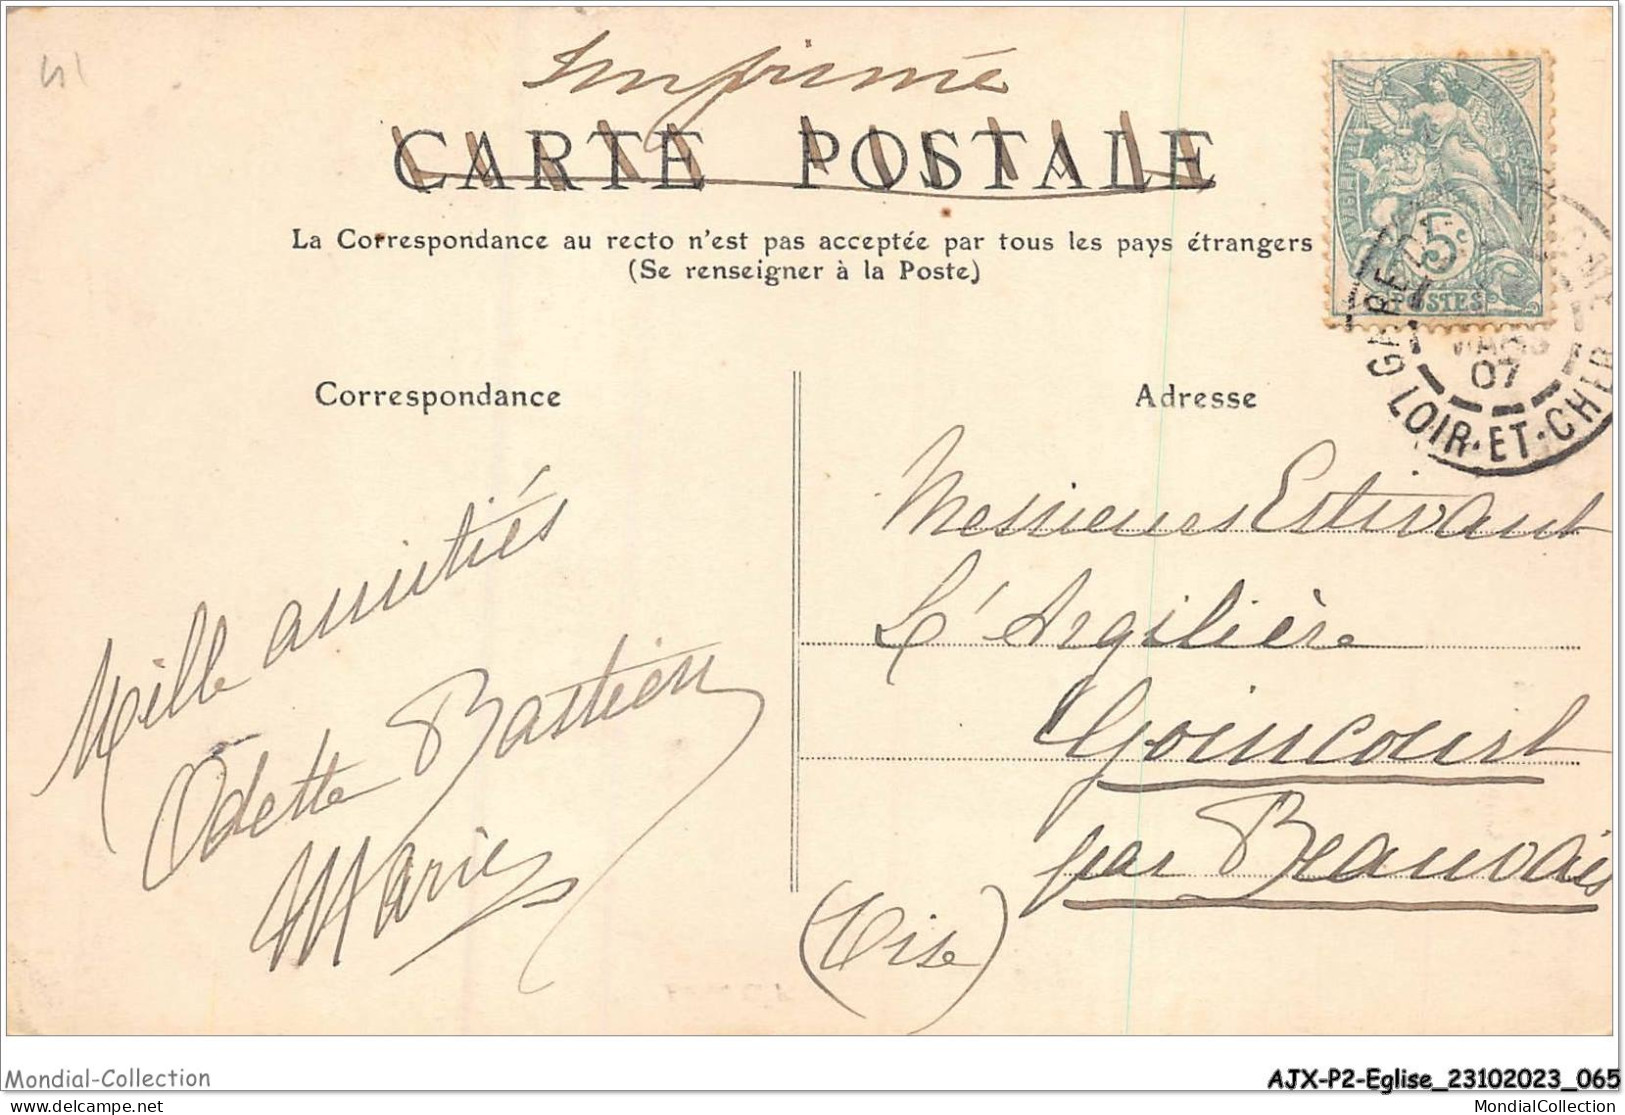 41
Imprimé
CARTE POSTALE
La Correspondance au recto n'est pas acceptée par tous les pays étrangers
(Se renseigner à la Poste)
5c
POSTES
GARE DE
MARS
07
LOIR-ET-CHER
Correspondance
Adresse
Mille amitiés
Odette Bastien
Marie
Messieurs Estivant
L'Argilière
Goincourt
par Beauvais
(Oise)
Mondial-Collection
AJX-P2-Eglise_23102023_065
delcampe.net
MondialCollection